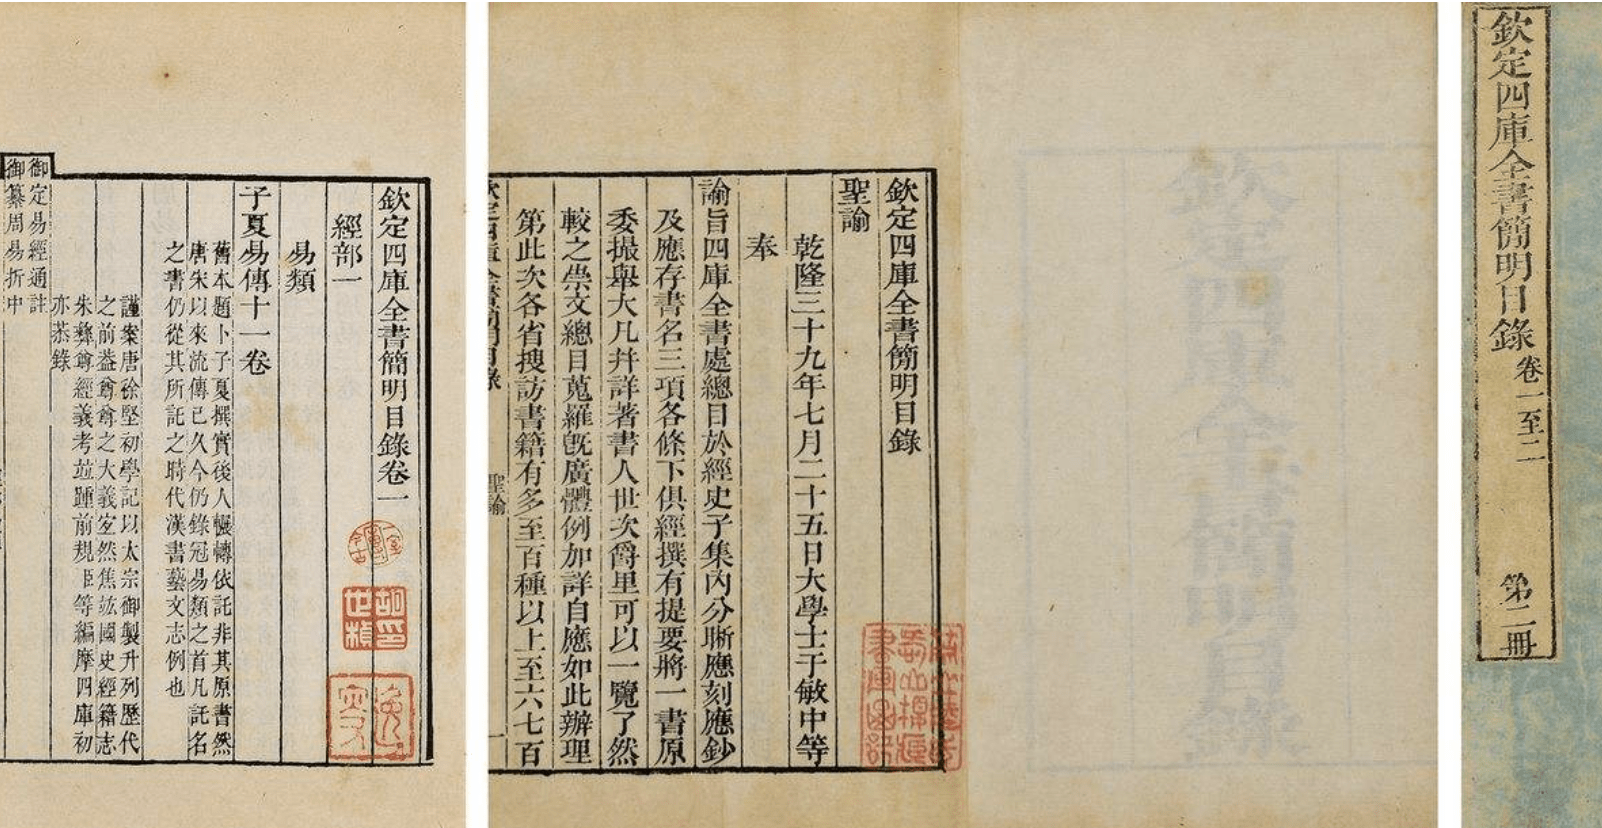 欽定四庫全書簡明目錄
卷一至二
第二冊
欽定四庫全書簡明目錄
聖諭
乾隆三十九年七月二十五日大學士于敏中等
奉
諭旨四庫全書處總目於經史子集內分晰應刻應鈔
及應存書名三項各條下俱經撰有提要將一書原
委撮舉大凡并詳著書人世次爵里可以一覽了然
較之崇文總目蒐羅旣廣體例加詳自應如此辦理
第此次各省搜訪書籍有多至百種以上至六七百
欽定四庫全書簡明目錄
聖諭
一
欽定四庫全書簡明目錄卷一
經部一
易類
子夏易傳十一卷
舊本題卜子夏撰實後人輾轉依託非其原書然
唐宋以來流傳已久今仍錄冠易類之首凡託名
之書仍從其所託之時代漢書藝文志例也
謹案唐徐堅初學記以太宗御製升列歷代
之前蓋尊尊之大義焦竑國史經籍志
朱彝尊經義考並踵前規臣等編摩四庫初
亦恭錄
御定易經通註
御纂周易折中
胡印
世楨